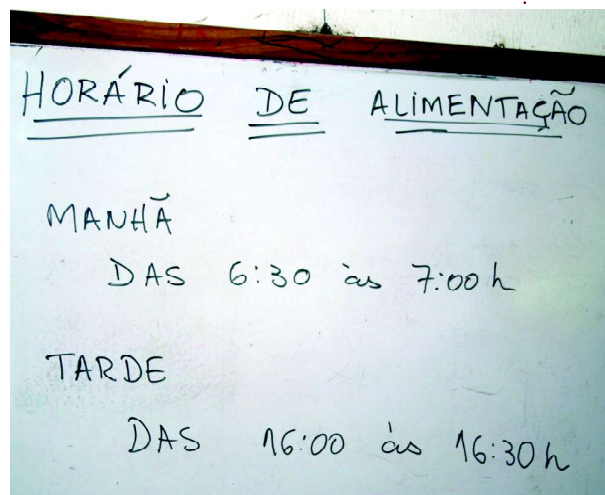 HORÁRIO DE ALIMENTAÇÃO
MANHÃ
DAS 6:30 às 7:00 h
TARDE
DAS 16:00 às 16:30 h